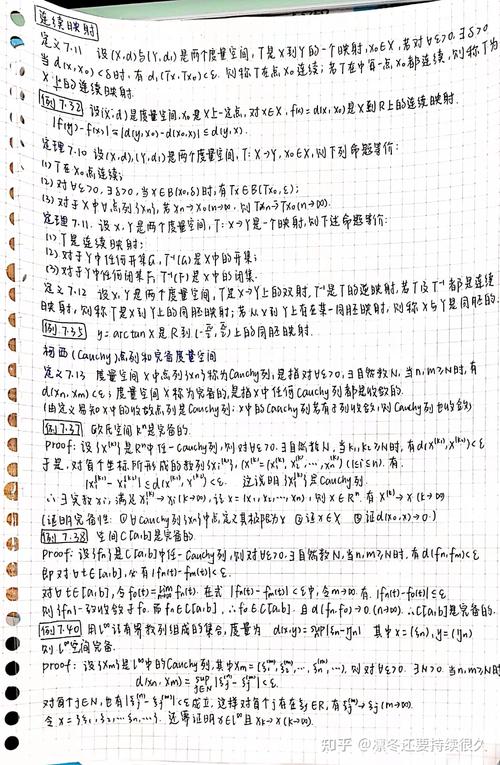 连续映射
定义7.11 设(X,d)与(Y,d₁)是两个度量空间,T是X到Y的一个映射,x₀∈X,若对∀ε>0,∃δ>0
当d(x,x₀)<δ时,有d₁(Tx,Tx₀)<ε.则称T在点x₀连续;若T在X中每一点x₀都连续,则称T为
X上的连续映射.
例7.32 设(X,d)是度量空间,x₀是X上一定点,对x∈X,f(x)=d(x,x₀)是X到R上的连续映射.
|f(y)-f(x)|=|d(y,x₀)-d(x₀,x)|≤d(y,x).
定理7.10 设(X,d),(Y,d₁)是两个度量空间,T:X→Y,x₀∈X,则下列命题等价:
(1)T在x₀点连续;
(2)对∀ε>0,∃δ>0,当x∈B(x₀,δ)时,有Tx∈B(Tx₀,ε);
(3)对X中点列{xn},若xn→x₀(n→∞),则Txn→Tx₀(n→∞).
定理7.11.设X,Y是两个度量空间,T:X→Y是一个映射,则下述命题等价:
(1)T是连续映射;
(2)对于Y中任何开集G,T⁻¹(G)是X中的开集;
(3)对于Y中任何闭集F,T⁻¹(F)是X中的闭集.
定义7.12 设X,Y是两个度量空间,T是X→Y上的双射,T⁻¹是T的逆映射,若T及T⁻¹都是连续
映射,则称T是X到Y上的同胚映射;若从X到Y上存在某一同胚映射,则称X与Y是同胚的.
例7.35 y=arctanx是R到(-π/2,π/2)上的同胚映射.
柯西(Cauchy)点列和完备度量空间
定义7.13 度量空间X中点列{xn}称为Cauchy列,是指对∀ε>0,∃自然数N,当n,m≥N时,有
d(xn,xm)<ε;度量空间X称为完备的,是指X中任何Cauchy列都是收敛的.
(由定义易知X中的收敛点列是Cauchy列;X中的Cauchy列若有子列收敛,则Cauchy列也收敛)
例7.37 欧氏空间Rⁿ是完备的.
Proof:设{x⁽ᵏ⁾}是Rⁿ中任一Cauchy列,则对∀ε>0,∃自然数N,当k₁,k₂≥N时,有d(x⁽ᵏ¹⁾,x⁽ᵏ²⁾)<ε
于是,对每个坐标所形成的数列{xᵢ⁽ᵏ⁾},(x⁽ᵏ⁾=(x₁⁽ᵏ⁾,x₂⁽ᵏ⁾,…,xn⁽ᵏ⁾)(1≤i≤n).有
|xᵢ⁽ᵏ¹⁾-xᵢ⁽ᵏ²⁾|≤d(x⁽ᵏ¹⁾,x⁽ᵏ²⁾)<ε. 这说明{xᵢ⁽ᵏ⁾}是Cauchy列.
∴∃实数xᵢ,满足xᵢ⁽ᵏ⁾→xᵢ(k→∞),设x=(x₁,x₂,…,xn),则x∈Rⁿ.有x⁽ᵏ⁾→x(k→∞)
(证明完备性:①∀Cauchy列{xn}中点,定义其极限为x ②证x∈X ③证d(xn,x)→0.)
例7.38 空间C[a,b]是完备的.
Proof:设{fn}是C[a,b]中任一Cauchy列,则对∀ε>0,∃自然数N,当n,m≥N时,有d(fn,fm)<ε
即对∀t∈[a,b],必有|fn(t)-fm(t)|<ε.
对∀t∈[a,b],令f₀(t)=lim fn(t).在式|fn(t)-fm(t)|<ε中,令m→∞.有|fn(t)-f₀(t)|≤ε.
则{fn}一致收敛于f₀.而fn∈C[a,b],∴f₀∈C[a,b].且d(fn,f₀)→0.(n→∞).∴C[a,b]是完备的.
例7.40 用l^∞记有界数列组成的集合,度量为 d(x,y)=sup|ξj-ηj| 其中x={ξn},y={ηn}
则l^∞空间完备.
proof:设{xm}是l^∞中的Cauchy列,其中xm={ξ₁⁽ᵐ⁾,ξ₂⁽ᵐ⁾,…,ξn⁽ᵐ⁾,…},则对∀ε>0.∃N>0.当n,m≥N时
d(xn,xm)=sup j∈N|ξj⁽ⁿ⁾-ξj⁽ᵐ⁾|<ε.
对每个j∈N,也有|ξj⁽ⁿ⁾-ξj⁽ᵐ⁾|<ε成立,这样对每个j存在ξj∈R,有ξj⁽ᵐ⁾→ξj(m→∞).
令x={ξ₁,ξ₂,…ξn,…}.还需证明x∈l^∞且xk→x(k→∞).
知乎 @凛冬还要持续很久